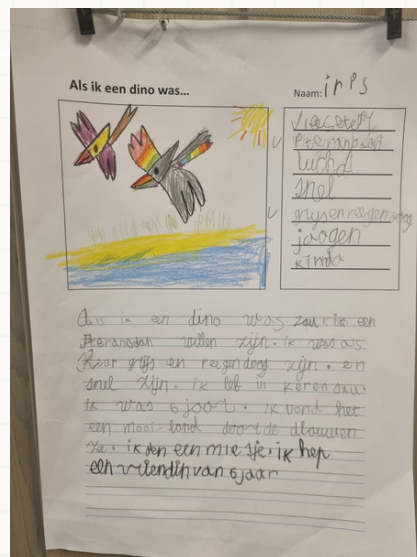 Als ik een dino was...
Naam: irPS
vleeseter
Pteranodon
lucht
snel
grijs en regenboog
jaagen
Als ik een dino was zou ik een
Pteranodon willen zijn. ik was als
Kluur grijs en regenboog zijn. en
snel zijn. ik leb in
ik was 6 jaar. ik vond het
een mooi land door de
ze. ik ben een mei sje. ik hep
een vriendin van 6 jaar